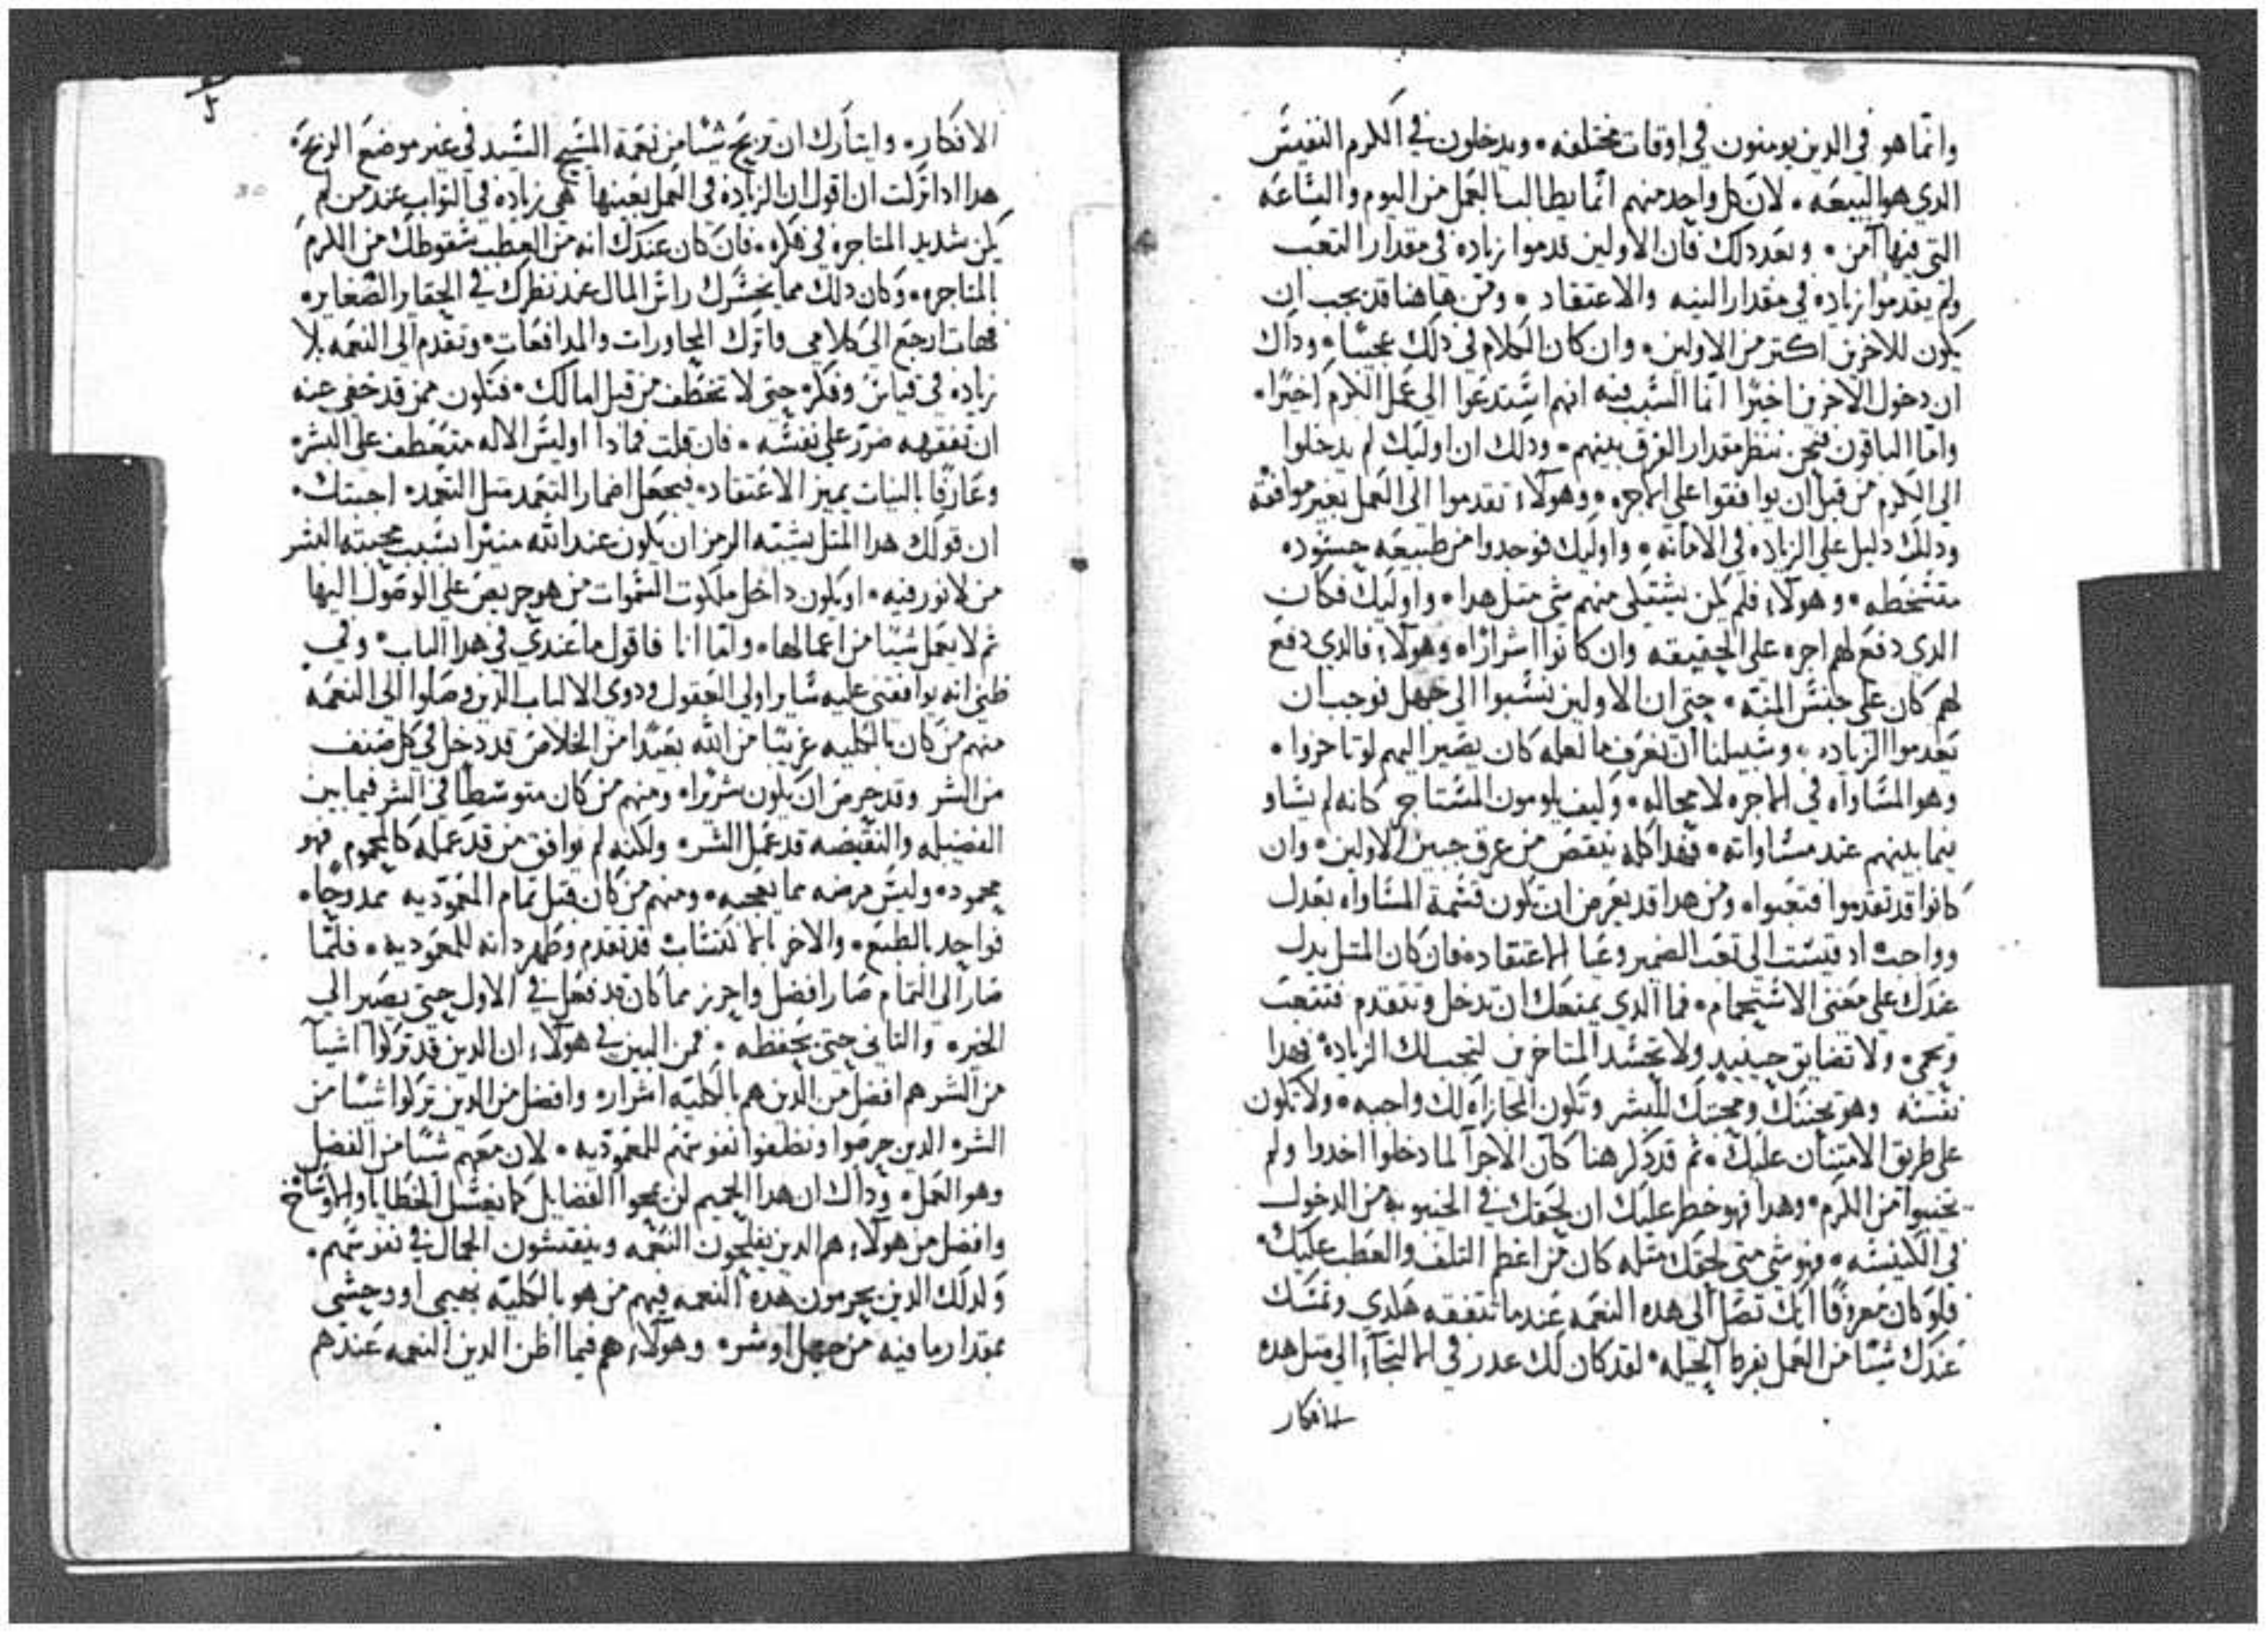 وانما هو في الدين يومنون في اوقات مختلفه • ويدخلون في الكرم النفيس
الدي هو البيعه • لان كل واحد منهم انما يطالب بالعمل من اليوم والساعه
التي فيها امن • وبعد دلك فان الاولين قدموا زياده في مقدار التعب
ولم يقدموا زياده في مقدار النيه والاعتقاد • ومن هاهنا قد يجب ان
يكون للاخرين اكتر من الاولين • وان كان الكلام في دلك عجيبًا • وداك
ان دخول الاخرين اخيرًا انما السبب فيه انهم استدعوا الى عمل الكرم اخيرًا •
واما الباقون فنحن ننظر مقدار الفرق بينهم • ودلك ان اوليك لم يدخلوا
الى الكروم من قبل ان يوافقوا على الاجره • وهولاء تقدموا الى العمل بغير موافقه
ودلك دليل على الزياده في الامانه • واوليك فوجدوا من طبيعه حسوده
متسخطه • وهولاء فلم يكن يشتكي منهم شي متل هدا • واوليك فكان
الدي دفع لهم اجره على الحقيقه وان كانوا اشرارًا • وهولاء فالدي دفع
لهم كان على جنس المنه • حتى ان الاولين نسبوا الى جهل فوجب ان
يعدموا الزياده • وسبيلنا ان نعرف ما لعله كان يصير اليهم لو تاخروا •
وهو المساواه في الاجره لا محاله • وكيف يلومون المستاجر كانه لم يساو
فيما بينهم عند مساواته • فهدا كله ينقص من عرق جبين الاولين • وان
كانوا قد تقدموا فتعبوا • ومن هدا قد يعرض ان تكون قسمة المساواه بعدل
وواجب اد قيست الى تعب الضمير وعيا الاعتقاد • فان كان المتل يدل
عندك على معنى الاستحمام • فما الدي يمنعك ان تدخل وتتقدم فتتعب
وتحمى • ولا تضايق حينيد ولا تحسد المتاخرين لتجب لك الزياده بهدا
نفسه وهو تحننك ومحبتك للبشر وتكون المجازاه لك واجبه • ولا تكون
على طريق الامتنان عليك • تم قد دكر هنا كان الاجرآ لما دخلوا اخدوا ولم
يخيبوا من الكرم • وهدا فهو خطر عليك ان يلحقك في الخيبوبه من الدخول
في الكنيسه • فهو شي متى لحقك متله كان من اعظم التلف والعطب عليك •
فلو كان معروفًا انك تصل الى هده النعمه عندما تتفقه هكدي وتمسك
عندك شيئًا من العمل بفرط الحيله • لقد كان لك عدر في الالتجآء الى متل هده
الافكار
الافكار • وايتارك ان تربح شيئًا من نعمة المسيح السيد في غير موضع الربح •
هدا ادا تركت ان اقول ان الزياده في العمل بعينها هي زياده في التواب عند من لم
يكن شديد المتاجره في فكره • فان كان عندك انه من العطب سقوطك من الكرم
بالمتاجره • وكان دلك مما يخسرك راس المال عند نظرك في الحقاير الصغاير •
فهات ارجع الى كلامي فاترك المجاورات والمدافعات • وتقدم الى النعمه بلا
زياده في قياس وفكر • حتى لا تخطف من قبل امالك • فتكون ممن قد خفي عنه
ان تفقهه ضرر على نفسه • فان قلت فمادا اوليس الاله متعطف على البشر •
وعارفًا بالنيات يميز الاعتقاد • فيجعل اضمار التعمد متل التعمد • اجبتك •
ان قولك هدا المتل يشبه الرمز ان يكون عند الله منيرًا بسبب محبته البشر
من لا نور فيه • او يكون داخل ملكوت السموات من هو حريص على الوصول اليها
تم لا يعمل شيئًا من اعمالها • واما انا فاقول ما عندي في هدا الباب • وفي
ظني انه يوافقني عليه ساير اولي العقول ودوي الالباب الدين وصلوا الى النعمه
منهم من كان بالكليه غريبًا من الله بعيدًا من الخلاص قد دخل في كل صنف
من الشر وقد حرص ان يكون شريرًا • ومنهم من كان متوسطًا في الشر فيما بين
الفضيله والنقيصه قد عمل الشر • ولكنه لم يوافق من قد عمله كالمحموم فهو
محمود • وليس مرضه مما يعجبه • ومنهم من كان قبل تمام المعموديه ممدوحًا •
فواحد بالطبع • والاخر بالاكتساب قد تقدم وطهر داته للمعموديه • فلما
صار الى التمام صار افضل واحرز مما كان قد فعل في الاول حتى يصير الى
الخير • والتاني حتى يحفظه • فمن البين في هولاء ان الدين قد تركوا اشيآ
من الشر هم افضل من الدين هم بالكليه اشرار • وافضل من الدين تركوا شيئًا من
الشر • الدين حرصوا ونظفوا نفوسهم للمعموديه • لان معهم شيئًا من الفضل
وهو العمل • وداك ان هدا الحميم لن يمحوا الفضايل كما يغسل الخطايا والاوساخ
وافضل من هولاء هم الدين يفلحون النعمه وينقشون الجمال في نفوسهم •
ولدلك الدين يحرمون هده النعمه فيهم من هو بالكليه بهيمي او وحشي
بمقدار ما فيه من جهل او شر • وهولاء هم فيما اظن الدين النعمه عندهم